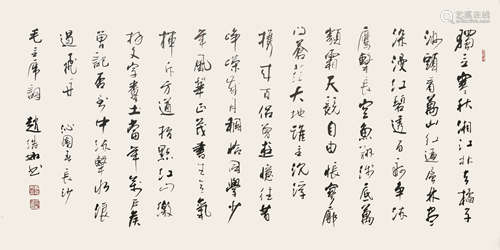 獨立寒秋湘江北去橘子
洲頭看萬山紅遍層林盡
染漫江碧透百舸争流
鷹擊長空魚翔淺底萬
類霜天競自由悵寥廓
问蒼茫大地誰主沉浮
携来百侣曾遊憶往昔
峥嵘岁月稠恰同學少
年風華正茂書生意氣
挥斥方遒指點江山激
扬文字糞土當年萬户侯
曾記否到中流擊水浪
遏飛舟 沁園春長沙
毛主席詞 趙浩如书